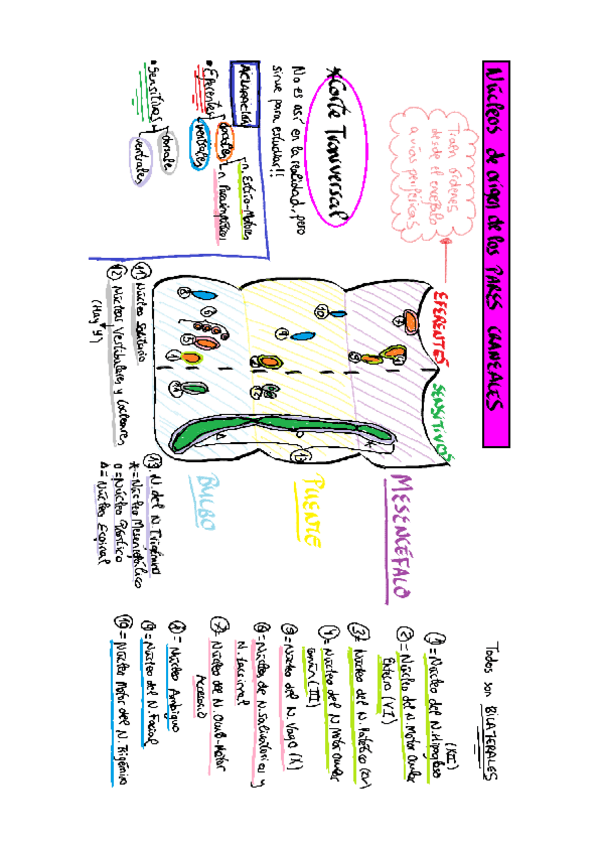 Núcleos de origen de los PARES CRANEALES
Traen órdenes
desde el encéfalo
a vías periféricas
*Corte Tranversal
No es así en la realidad, pero
sirve para estudiar!!
ACLARACIÓN
• Eferentes
dorsales
ventrales
n Estrio-Motores
n Parasimpáticos
• Sensitivos
dorsales
ventrales
EFERENTES
SENSITIVOS
MESENCÉFALO
PUENTE
BULBO
11 Núcleo Solitario
12 Núcleos Vestibulares y Cocleares
(Hay 4)
13. N. del N. Trigémino
* = Núcleo Mesencefálico
O = Núcleo Póntico
Δ = Núcleo Espinal
Todos son BILATERALES
1 = Núcleo del N. Hipogloso
(XII)
2 = Núcleo del N. Motor Ocular
Externo (VI)
3 = Núcleo del N. Patético (IV)
4 = Núcleo del N. Motor Ocular
Común (III)
5 = Núcleo del N. Vago (X)
6 = Núcleos de N. Salivatorios y
N. Lacrimal
7 = Núcleo del N. Oculo-Motor
Accesorio
8 = Núcleo Ambiguo
9 = Núcleo del N. Facial
10 = Núcleo Motor del N. Trigémino